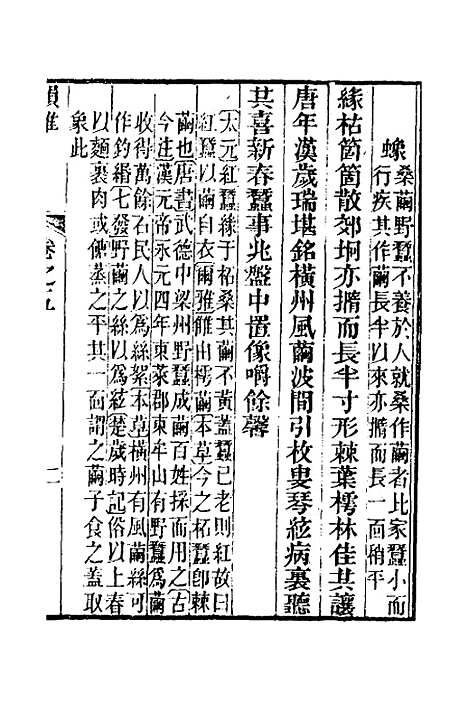 蟓桑繭野蠶不養於人就桑作繭者比家蠶小而
行疾其作繭長半以來亦擠而長一面稍平
緣枯箇箇散郊坰亦擠而長半寸形棘葉樗林佳其讓
唐年漢歲瑞堪銘橫州風繭波間引枚叟琴絃病裏聽
其喜新春蠶事兆盤中置像嚼餘馨
太元紅蠶緣于枯桑其繭不黃蓋蠶已老則紅故曰
紅蠶以繭自衣爾雅雔由樗繭本草今之柘蠶卽棘
繭也唐書武德中梁州野蠶成繭百姓採而用之古
今注漢元帝永元四年東萊郡東牟山有野蠶爲繭
收得萬餘石民人以爲絲絮本草橫州有風繭絲可
作釣緡七發野繭之絲以爲絃楚歲時起俗以上春
以麵裹肉或餴蒸之平其一面謂之繭子食之蓋取
象此
卷之五
二